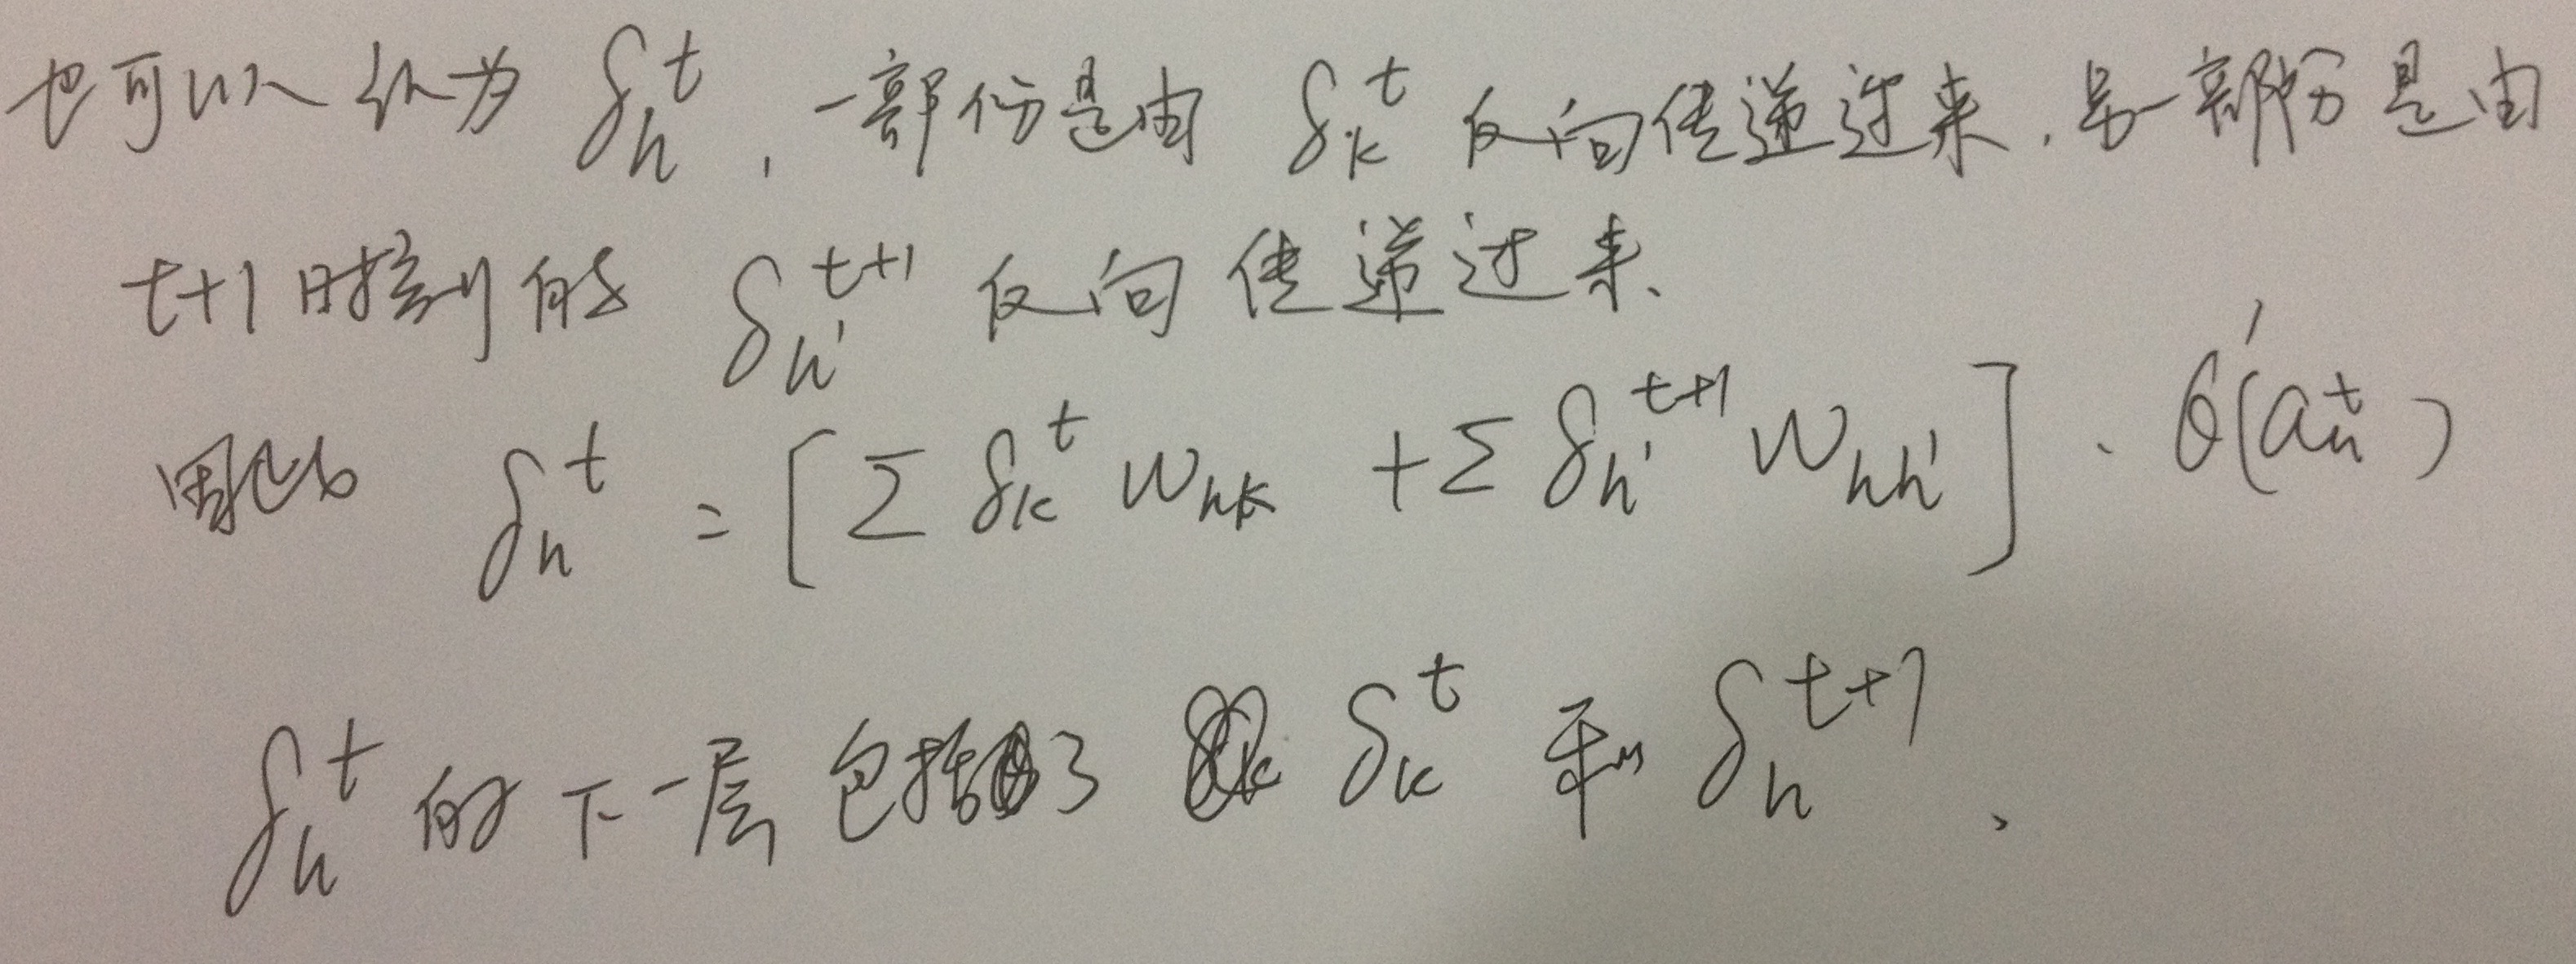 也可以认为 δ_h^t，一部份是由 δ_k^t 反向传递过来，另一部份是由
t+1时刻的 δ_{h'}^{t+1} 反向传递过来、
因此 δ_h^t = [Σ δ_k^t w_{hk} + Σ δ_{h'}^{t+1} w_{hh'}] · θ'(a_h^t)
δ_h^t 的下一层包括了 δ_k^t 和 δ_h^{t+1}、